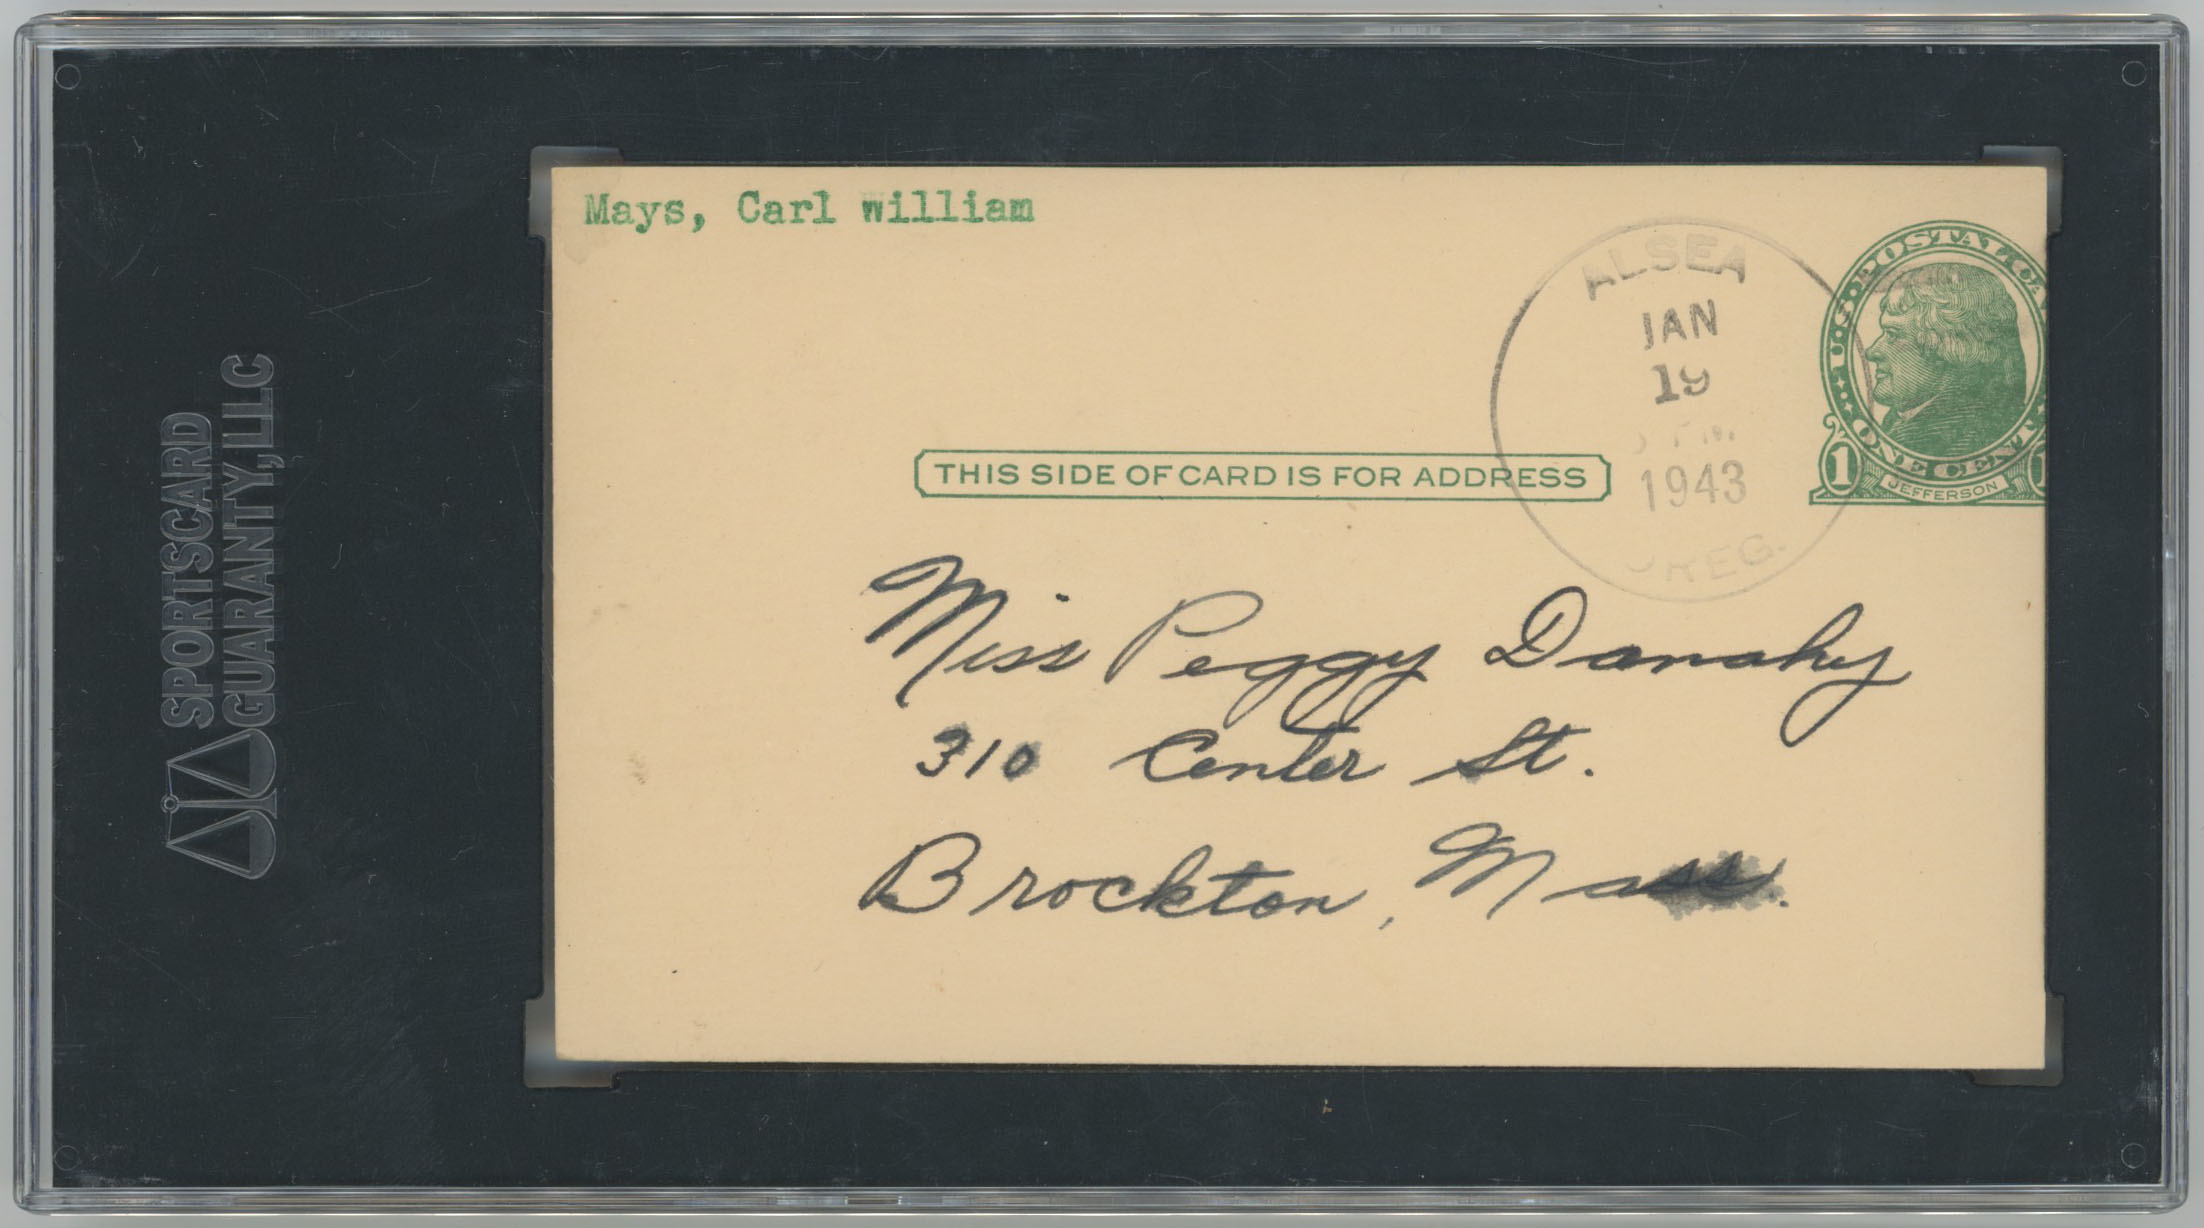 Mays, Carl William
ALSEA
JAN
19
1943
OREG.
U·S·POSTAL CA
ONE CENT
1
JEFFERSON
THIS SIDE OF CARD IS FOR ADDRESS
Miss Peggy Danahy
310 Center St.
Brockton, Mass.
SPORTSCARD
GUARANTY, LLC